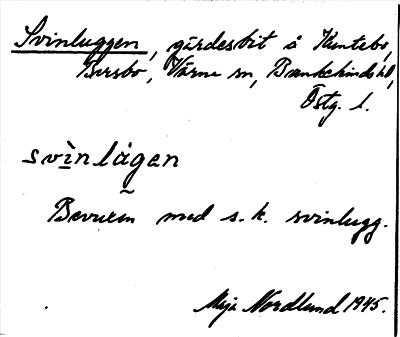 Svinluggen, gärdesbit å Kuntebo,
Bersbo, Värna sn, Bankekinds hd,
Östg. l.
svinlågen
Bevuxen med s. k. svinlugg.
Maja Nordlund 1945.